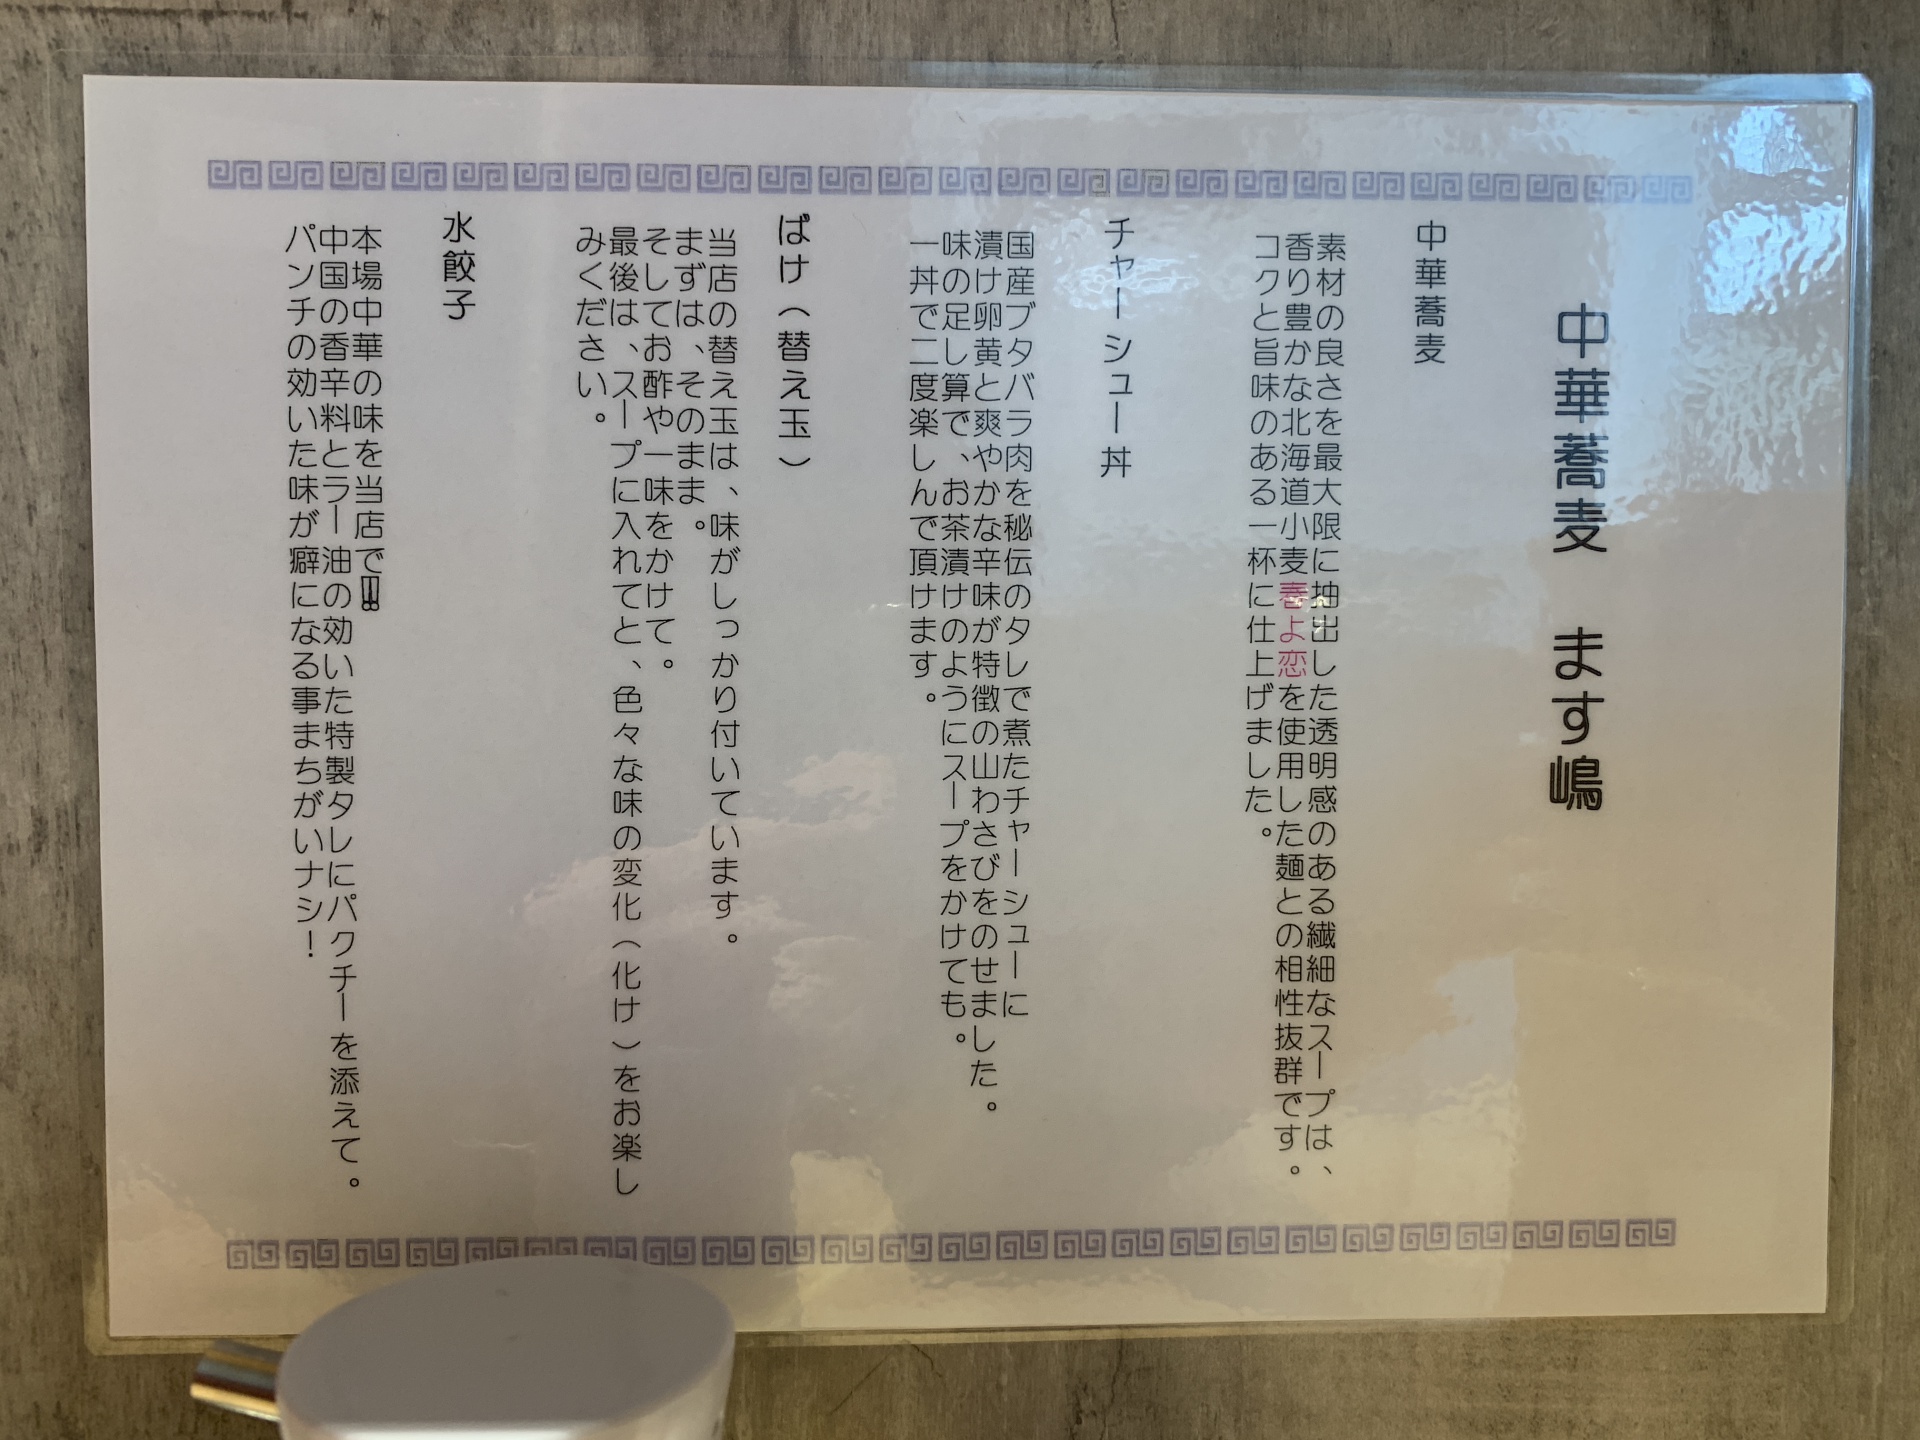 中華蕎麦　ます嶋
中華蕎麦
素材の良さを最大限に抽出した透明感のある繊細なスープは、
香り豊かな北海道小麦春よ恋を使用した麺との相性抜群です。
コクと旨味のある一杯に仕上げました。
チャーシュー丼
国産ブタバラ肉を秘伝のタレで煮たチャーシューに
漬け卵黄と爽やかな辛味が特徴の山わさびをのせました。
味の足し算で、お茶漬けのようにスープをかけても。
一丼で二度楽しんで頂けます。
ばけ（替え玉）
当店の替え玉は、味がしっかり付いています。
まずは、そのまま。
そしてお酢や一味をかけて。
最後は、スープに入れてと、色々な味の変化（化け）をお楽し
みください。
水餃子
本場中華の味を当店で!!
中国の香辛料とラー油の効いた特製タレにパクチーを添えて。
パンチの効いた味が癖になる事まちがいナシ！